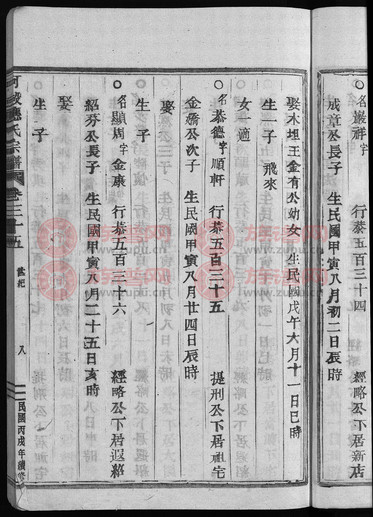 ○名嚴祥字 行恭五百三十四 經略公下居新店
成章公長子 生民國甲寅八月初二日辰時
娶木埋王金有公幼女 生民國戊午六月十一日巳時
生一子 飛來
女一適
○名恭德字順軒 行恭五百三十五 提刑公下居祖宅
金喬公次子 生民國甲寅八月廿四日辰時
娶
生子
○名顯周字金康 行恭五百三十六 經略公下居遐紹
紹芬公長子 生民國甲寅八月二十五日亥時
娶
生子
應氏宗譜 卷三十五 世紀 八 民國丙戌年續修
族譜網
www.zupu.cn